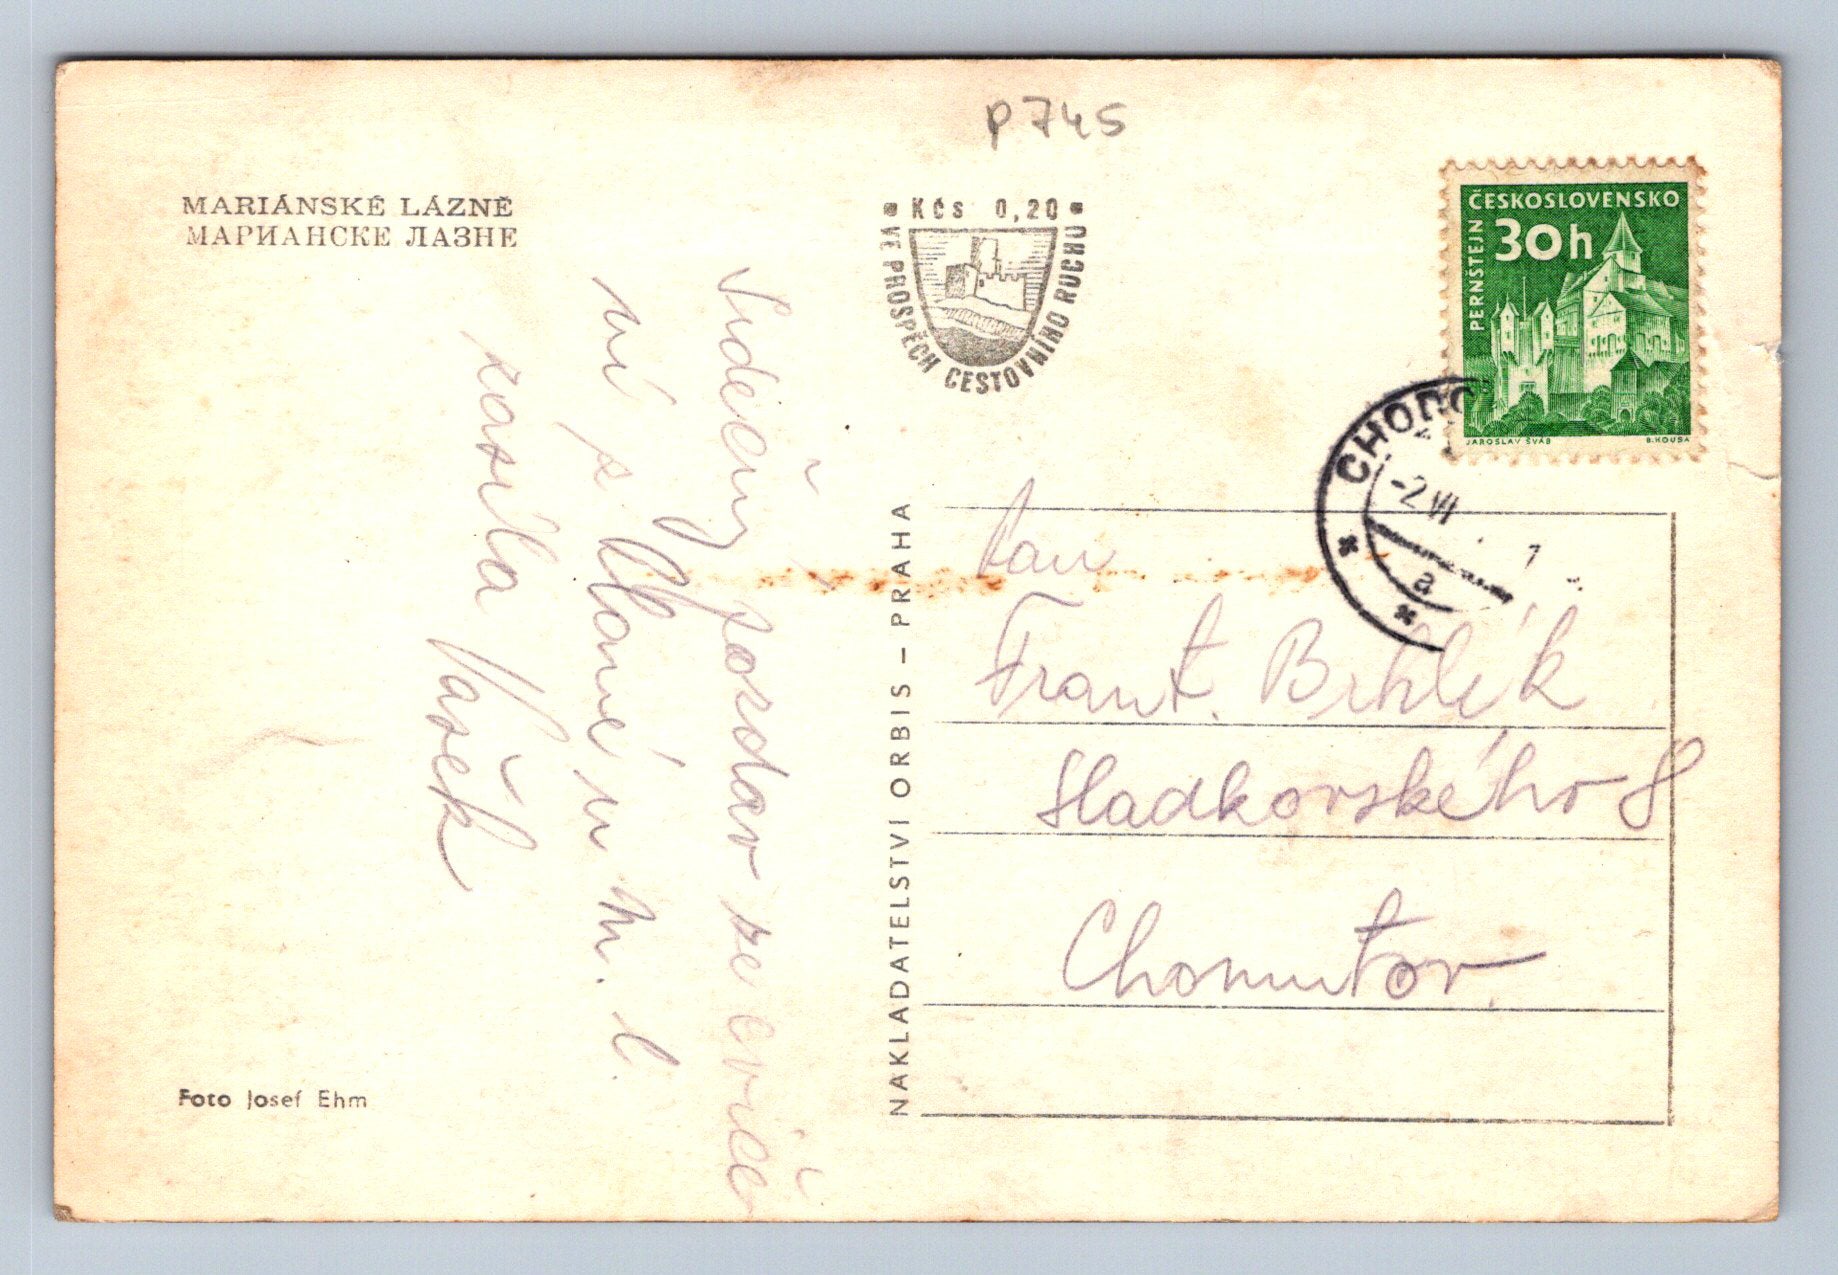 P745
MARIÁNSKÉ LÁZNĚ
МАРИАНСКЕ ЛАЗНЕ
Kčs 0,20
VE PROSPĚCH CESTOVNÍHO RUCHU
ČESKOSLOVENSKO
30h
PERNŠTEJN
JAROSLAV ŠVÁB
B. HOUSA
CHODO
-2 VI
a
Srdečný pozdrav ze cviče
ní z Plané u M. L.
zasílá Vašek
NAKLADATELSTVÍ ORBIS – PRAHA
Pan
Frant. Brhlík
Sladkovského 8
Chomutov.
Foto Josef Ehm